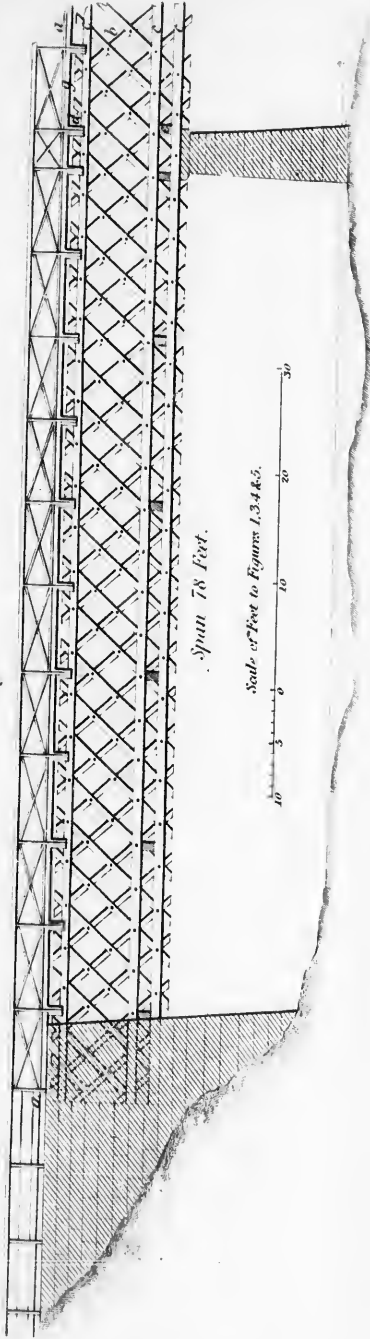 a
g
d
b
c
e
a
Span 78 Feet.
Scale of Feet to Figures 1.3.4.&5.
10 5 0 10 20 30